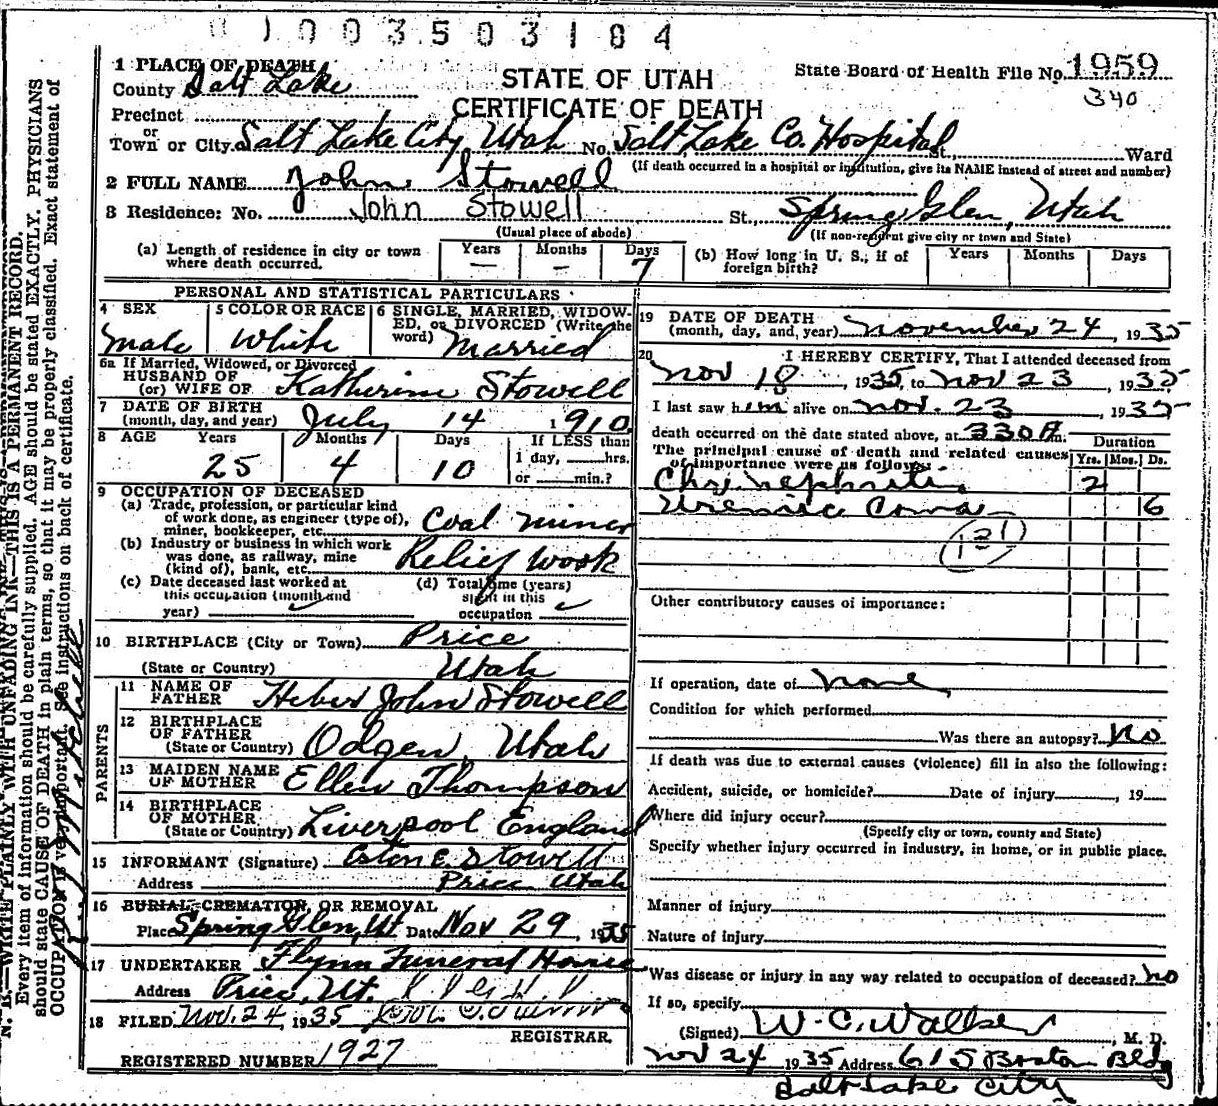 1003503184
1 PLACE OF DEATH
County Salt Lake
STATE OF UTAH
CERTIFICATE OF DEATH
State Board of Health File No. 1959
340
Precinct
or
Town or City. Salt Lake City, Utah No. Salt Lake Co. Hospital St., Ward
(If death occurred in a hospital or institution, give its NAME instead of street and number)
2 FULL NAME John Stowell
3 Residence: No. John Stowell St., Spring Glen, Utah
(Usual place of abode) (If non-resident give city or town and State)
(a) Length of residence in city or town where death occurred. Years — Months — Days 7
(b) How long in U. S., if of foreign birth? Years Months Days
PERSONAL AND STATISTICAL PARTICULARS
4 SEX Male
5 COLOR OR RACE White
6 SINGLE, MARRIED, WIDOWED, or DIVORCED (Write the word) Married
6a If Married, Widowed, or Divorced
HUSBAND OF
(or) WIFE OF Katherine Stowell
7 DATE OF BIRTH
(month, day, and year) July 14 1910
8 AGE Years Months Days If LESS than
25 4 10 1 day, hrs.
or min.?
9 OCCUPATION OF DECEASED
(a) Trade, profession, or particular kind of work done, as engineer (type of), miner, bookkeeper, etc. Coal miner
(b) Industry or business in which work was done, as railway, mine (kind of), bank, etc. Relief Work
(c) Date deceased last worked at this occupation (month and year)
(d) Total time (years) spent in this occupation
10 BIRTHPLACE (City or Town) Price
(State or Country) Utah
PARENTS
11 NAME OF FATHER Heber John Stowell
12 BIRTHPLACE OF FATHER
(State or Country) Odgen, Utah
13 MAIDEN NAME OF MOTHER Ellen Thompson
14 BIRTHPLACE OF MOTHER
(State or Country) Liverpool England
15 INFORMANT (Signature) Eston E. Stowell
Address Price Utah
16 BURIAL, CREMATION, OR REMOVAL
Place Spring Glen, Ut Date Nov 29, 1935
17 UNDERTAKER Flynn Funeral Home
Address Price, Ut.
18 FILED Nov. 24, 1935
REGISTRAR.
REGISTERED NUMBER 1927
19 DATE OF DEATH
(month, day, and, year) November 24, 1935
20 I HEREBY CERTIFY, That I attended deceased from
Nov 18, 1935, to Nov 23, 1935
I last saw him alive on Nov. 23, 1935
death occurred on the date stated above, at 330 A m.
The principal cause of death and related causes of importance were as follows: Duration
Yrs. Mos. Ds.
Chr. nephritis 2
Uremic Coma 6
131
Other contributory causes of importance:
If operation, date of none
Condition for which performed
Was there an autopsy? No
If death was due to external causes (violence) fill in also the following:
Accident, suicide, or homicide? Date of injury , 19
Where did injury occur?
(Specify city or town, county and State)
Specify whether injury occurred in industry, in home, or in public place.
Manner of injury
Nature of injury
Was disease or injury in any way related to occupation of deceased? no
If so, specify
(Signed) W. C. Walker, M. D.
Nov 24 1935 Address 615 Boston Bldg
Salt Lake City
N. B.—WRITE PLAINLY WITH UNFADING INK—THIS IS A PERMANENT RECORD.
Every item of information should be carefully supplied. AGE should be stated EXACTLY. PHYSICIANS
should state CAUSE OF DEATH in plain terms, so that it may be properly classified. Exact statement of
OCCUPATION is very important. See instructions on back of certificate.